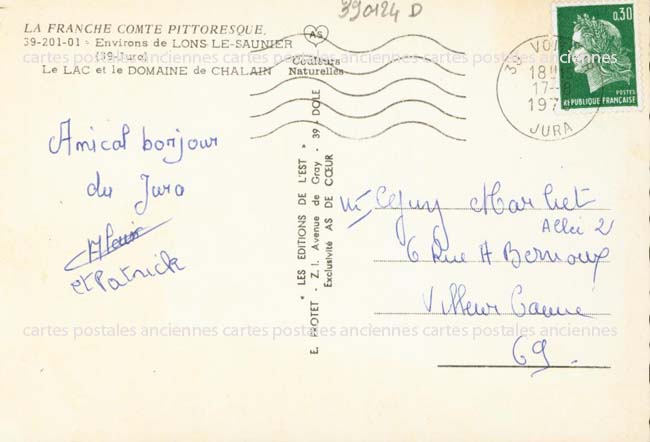 390124 D
LA FRANCHE COMTE PITTORESQUE.
39-201-01 - Environs de LONS-LE-SAUNIER
(39-Jura)
Le LAC et le DOMAINE de CHALAIN
AS
Couleurs
Naturelles
cartes postales anciennes cartes postales anciennes cartes postales anciennes
39 VOI
18H
17-8
197
JURA
0,30
POSTES
REPUBLIQUE FRANÇAISE
Amical bonjour
du Jura
et Patrick
" LES EDITIONS DE L'EST "
E. PROTET - Z.I. Avenue de Gray - 39 - DOLE
Exclusivité AS DE CŒUR
Guy
Allée 2
6 Rue A Bernoux
Villeurbanne
69.
cartes postales anciennes cartes postales anciennes cartes postales anciennes